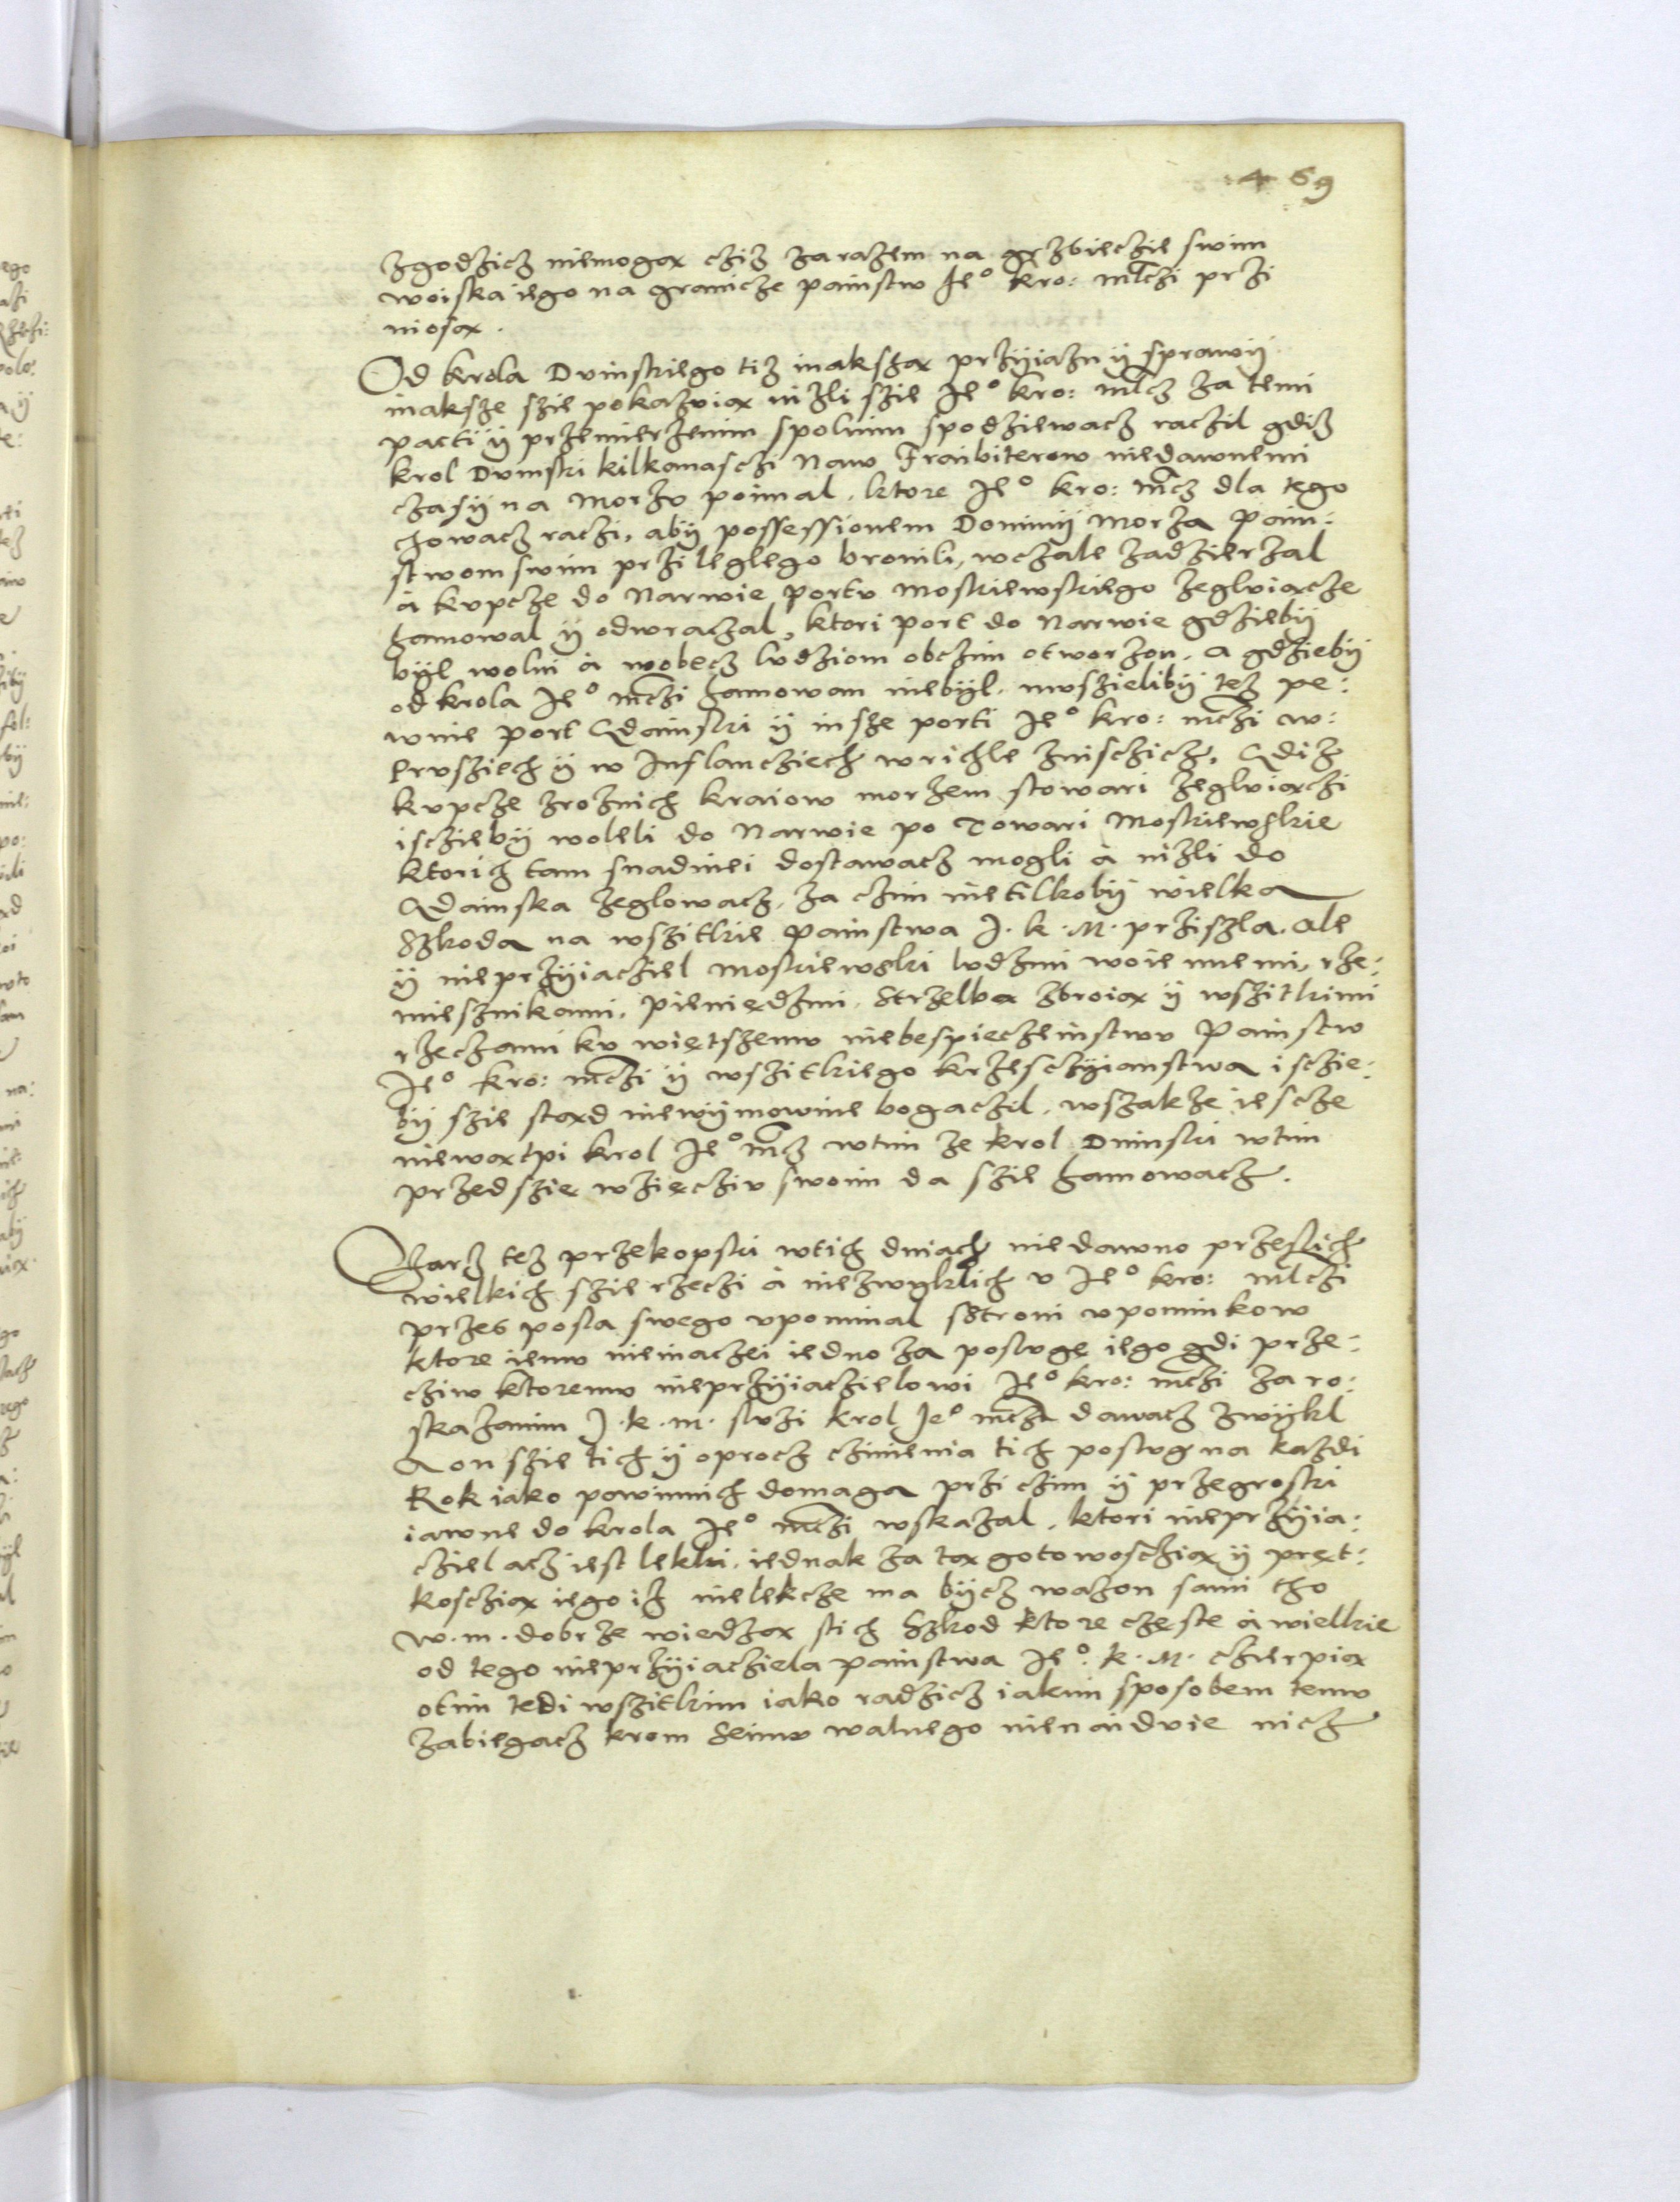 469
zgodzicz niemogax cziz zarazem na grzbieczie swim
woiska iego na granicze painstw Je° kro: mlczi przi
niosax.
Od krola Duinskiego tiz inakszax przÿiazn ÿ sprawÿ
inaksze szie pokazuiax nizli szie Je° kro: mlcz za temi
pacti ÿ przemierzenim spolnim spodziewacz raczil gdiz
krol Duinski kilkanasczi Naw Fraibiterow niedawnemi
czasÿ na Morzu poimal, ktore Je° kro: mcz dla tego
chowacz raczi, abÿ possessionem Dominÿ Morza Pain:
stwom swim przileglego bronili, wczale zadzierzal
à kupcze do Narwie Portu Moskiewskiego zegluiacze
hamowal ÿ odwraczal, ktori port do Narwie gdziebÿ
bÿl wolni à wobecz ludziom obczim otworzon, a gdziebÿ
od krola Je° mczi hamowan niebÿl, muszielibÿ tez pe:
wnie port Gdainski ÿ insze porti Je° kro: mczi w:
Prusziech ÿ w Inflancziech wrichle znisczicz, Gdiz
kupcze zroznich kraiow morzem stowari zegluiaxczi
iscziebÿ woleli do Narwie po Towari Moskiewskie
ktorich tam snadniei dostawacz mogli à nizli do
Gdainska zeglowacz, za czim nietilkobÿ wielka
Szkoda na wszitkie Painstwa J. k. M. prziszla, ale
ÿ nieprzÿiacziel Moskiewski ludzmi woiennemi, rze:
miesznikami, Pieniędzmi, Strzelbax zbroiax ÿ wszitkimi
rzeczami ku więtszemu niebespieczeinstwu Painstw
Je° kro: mczi ÿ wszitkiego krzesczÿianstwa isczie:
bÿ szie stoxd niewÿmownie bogaczil, wszakze iescze
niewaxtpi krol Je° mcz wtim ze krol Duinski wtim
przedszię wzięcziu swoim da szie hamowacz.
Czarz tez przekopski wtich dniach niedawno przeslich
wielkich szie rzeczi à niezwyklich u Je° kro: mlczi
przes posla swego upominal Stroni upominkow
ktore iemu nieinaczei iedno za poslugę iego gdi prze:
cziw ktoremu nieprzÿiaczielowi Je° kro: mczi za ro:
skazanim J. k. m. sluzi krol Je° mcz dawacz zwÿkl
A on szie tich ÿ oprocz czinienia tich poslug na kazdi
Rok iako powinnich domaga przi czim ÿ przegroski
iawne do krola Je° mczi wskazal, ktori nieprzÿia:
cziel acz iest lekki, iednak za tax gotowoscziax ÿ pręt:
koscziax iego iz nielekcze ma bÿcz wazon sami tho
W. m. dobrze wiedzax stich Szkod ktore częste à wielkie
od tego nieprzÿiacziela Painstwa Je° k. M. czierpiax
otim tedi wszitkim iako radzicz iakim sposobem temu
zabiegacz krom Seimu walnego nienaiduie nicz